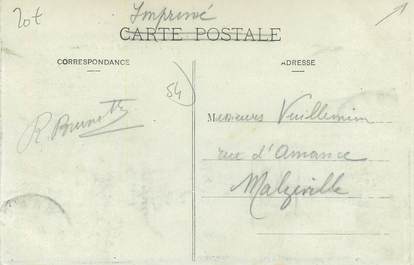 20t
Imprimé
CARTE POSTALE
CORRESPONDANCE
ADRESSE
54
R. Brunotte
Messieurs Vuillemin
rue d'Amance
Malzéville